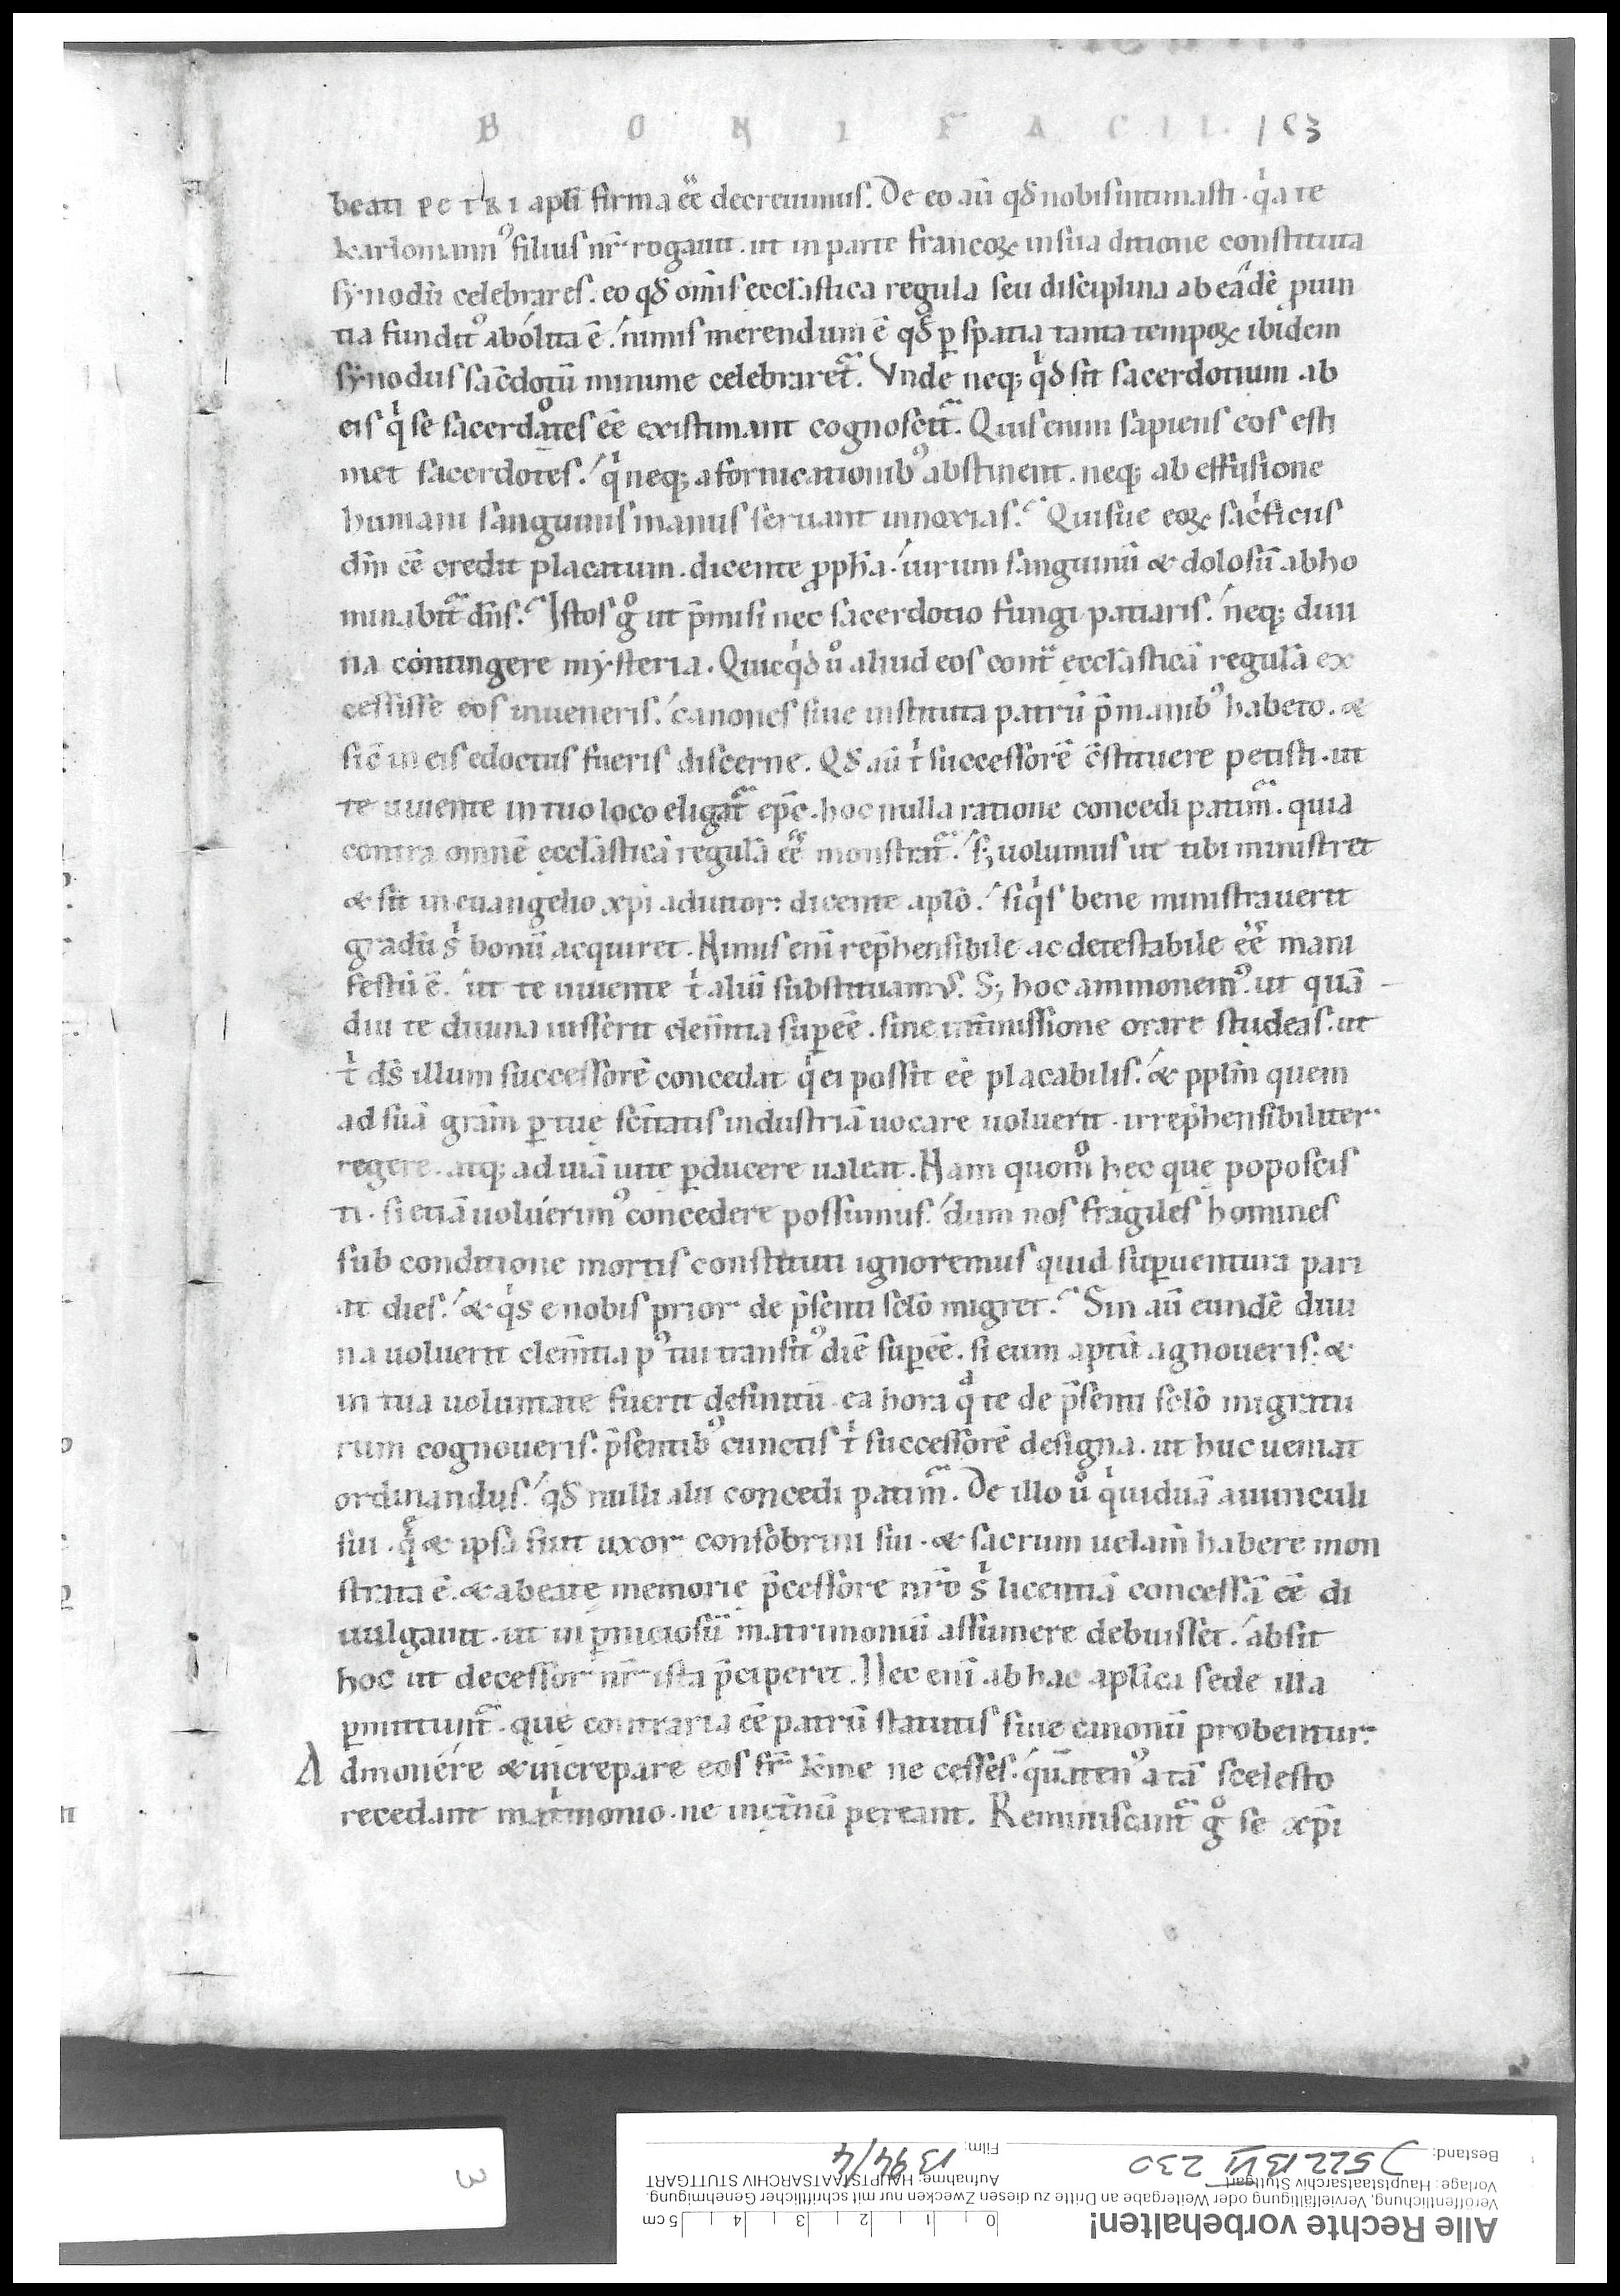 B O N I F A C I I . 163
beati PETRI apl̄i firma eē decreuimus. De eo aū qđ nobis intimasti . qͥa te
karlomannꝰ filius nr̄ rogauit . ut in parte francoꝝ in sua ditione constituta
sẏnodū celebrares . eo qđ om̄is eccl̄astica regula seu disciplina ab eādē ꝓuin
tia funditꝰ abolita ē . nimis merendum ē qđ ꝑ spatia tanta tempoꝝ ibidem
sẏnodus sac̄dotū minime celebraret᷑. Vnde neq; qͥd sit sacerdotium ab
eis qͥ se sacerdotes eē existimant cognoscit᷑. Quis enim sapiens eos esti
met sacerdotes . qͥ neq; a fornicationibꝰ abstinent . neq; ab effusione
humani sanguinis manus seruant innoxias . Quisue eoꝝ sac̍ficiis
dm̄ eē credit placatum . dicente ꝓph̄a . uirum sanguinū & dolosū abho
minabit᷑ dn̄s . Istos gͦ ut p̄misi nec sacerdotio fungi patiaris . neq; diui
na contingere mẏsteria . Quicqͥd uͦ aliud eos cont͛ eccl̄asticā regulā ex
cessisse eos inueneris . canones siue instituta patrū p̄ manibꝰ habeto . &
sic̄ in eis edoctus fueris discerne . Qđ aū tͥ successorē c̄stituere petisti . ut
te uiuente in tuo loco eligat᷑ ep̄c . hoc nulla ratione concedi patim᷑ . quia
contra omnē eccl̄asticā regulā eē monstrat᷑ . s; uolumus ut tibi ministret
& sit in euangelio xp̄i adiutor . dicente apl̄o . siqͥs bene ministrauerit
gradū sͥ bonū acquiret . Nimis enī rep̄hensibile ac detestabile eē mani
festū ē . ut te uiuente tͥ aliū substituamus . S; hoc ammonemꝰ . ut quā
diu te diuina iusserit clem̄tia sup̱eē . sine int̄missione orare studeas . ut
tͥ ds̄ illum successorē concedat qͥ ei possit eē placabilis . & ppl̄m quem
ad suā grām ꝑ tuę sc̄itatis industriā uocare uoluerit . irrep̄hensibiliter
regere . atq; ad uiā uitę ꝑducere ualeat . Nam quomͦ hęc quę poposcis
ti . si etiā uoluerimꝰ concedere possumus . dum nos fragiles homines
sub conditione mortis constituti ignoremus quid sup̱uentura pari
at dies . & qͥs e nobis prior de p̄senti sclō migret . Sin aū eundē diui
na uoluerit clem̄tia pꝰ tui transitꝰ diē sup̱eē . si eum aptū agnoueris . &
in tua uoluntate fuerit definitū . ea hora qͣ te de p̄senti sclō migratu
rum cognoueris . p̄sentibꝰ cunctis tͥ successorē designa . ut huc ueniat
ordinandus . qđ nulli alii concedi patim᷑ . De illo uͦ qͥ uiduā auunculi
sui . qͣ & ipsa fuit uxor consobrini sui . & sacrum uelam̄ habere mon
strata ē . & a beatę memorię p̄cessore nr̄o sͥ licentiā concessā eē di
uulgauit . ut in ꝑniciosū matrimoniū assumere debuisset . absit
hoc ut decessor nr̄ ista p̄ciperet . Nec enī ab hac aplīca sede illa
ꝑmittunt᷑ . quę contraria eē patrū statutis siue canonū probentur .
Admonere & increpare eos fr̄ kme ne cesses . qͣtenꝰ a tā scelesto
recedant matͥmonio . ne in ęt̄nū pereant . Reminiscant᷑ gͦ se xp̄i
3
0 1 2 3 4 5 cm
Alle Rechte vorbehalten!
Veröffentlichung, Vervielfältigung oder Weitergabe an Dritte zu diesen Zwecken nur mit schriftlicher Genehmigung.
Vorlage: Hauptstaatsarchiv Stuttgart
Aufnahme: HAUPTSTAATSARCHIV STUTTGART
Bestand: J 522 B VI 230
Film: B 94/4